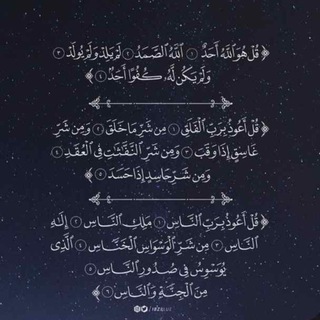 ﴿ قُلْ هُوَ ٱللَّهُ أَحَدٌ ١ ٱللَّهُ ٱلصَّمَدُ ٢ لَمْ يَلِدْ وَلَمْ يُولَدْ ٣
وَلَمْ يَكُن لَّهُۥ كُفُوًا أَحَدٌ ٤ ﴾
﴿ قُلْ أَعُوذُ بِرَبِّ ٱلْفَلَقِ ١ مِن شَرِّ مَا خَلَقَ ٢ وَمِن شَرِّ
غَاسِقٍ إِذَا وَقَبَ ٣ وَمِن شَرِّ ٱلنَّفَّـٰثَـٰتِ فِى ٱلْعُقَدِ ٤
وَمِن شَرِّ حَاسِدٍ إِذَا حَسَدَ ٥ ﴾
﴿ قُلْ أَعُوذُ بِرَبِّ ٱلنَّاسِ ١ مَلِكِ ٱلنَّاسِ ٢ إِلَـٰهِ
ٱلنَّاسِ ٣ مِن شَرِّ ٱلْوَسْوَاسِ ٱلْخَنَّاسِ ٤ ٱلَّذِى
يُوَسْوِسُ فِى صُدُورِ ٱلنَّاسِ ٥
مِنَ ٱلْجِنَّةِ وَٱلنَّاسِ ٦ ﴾